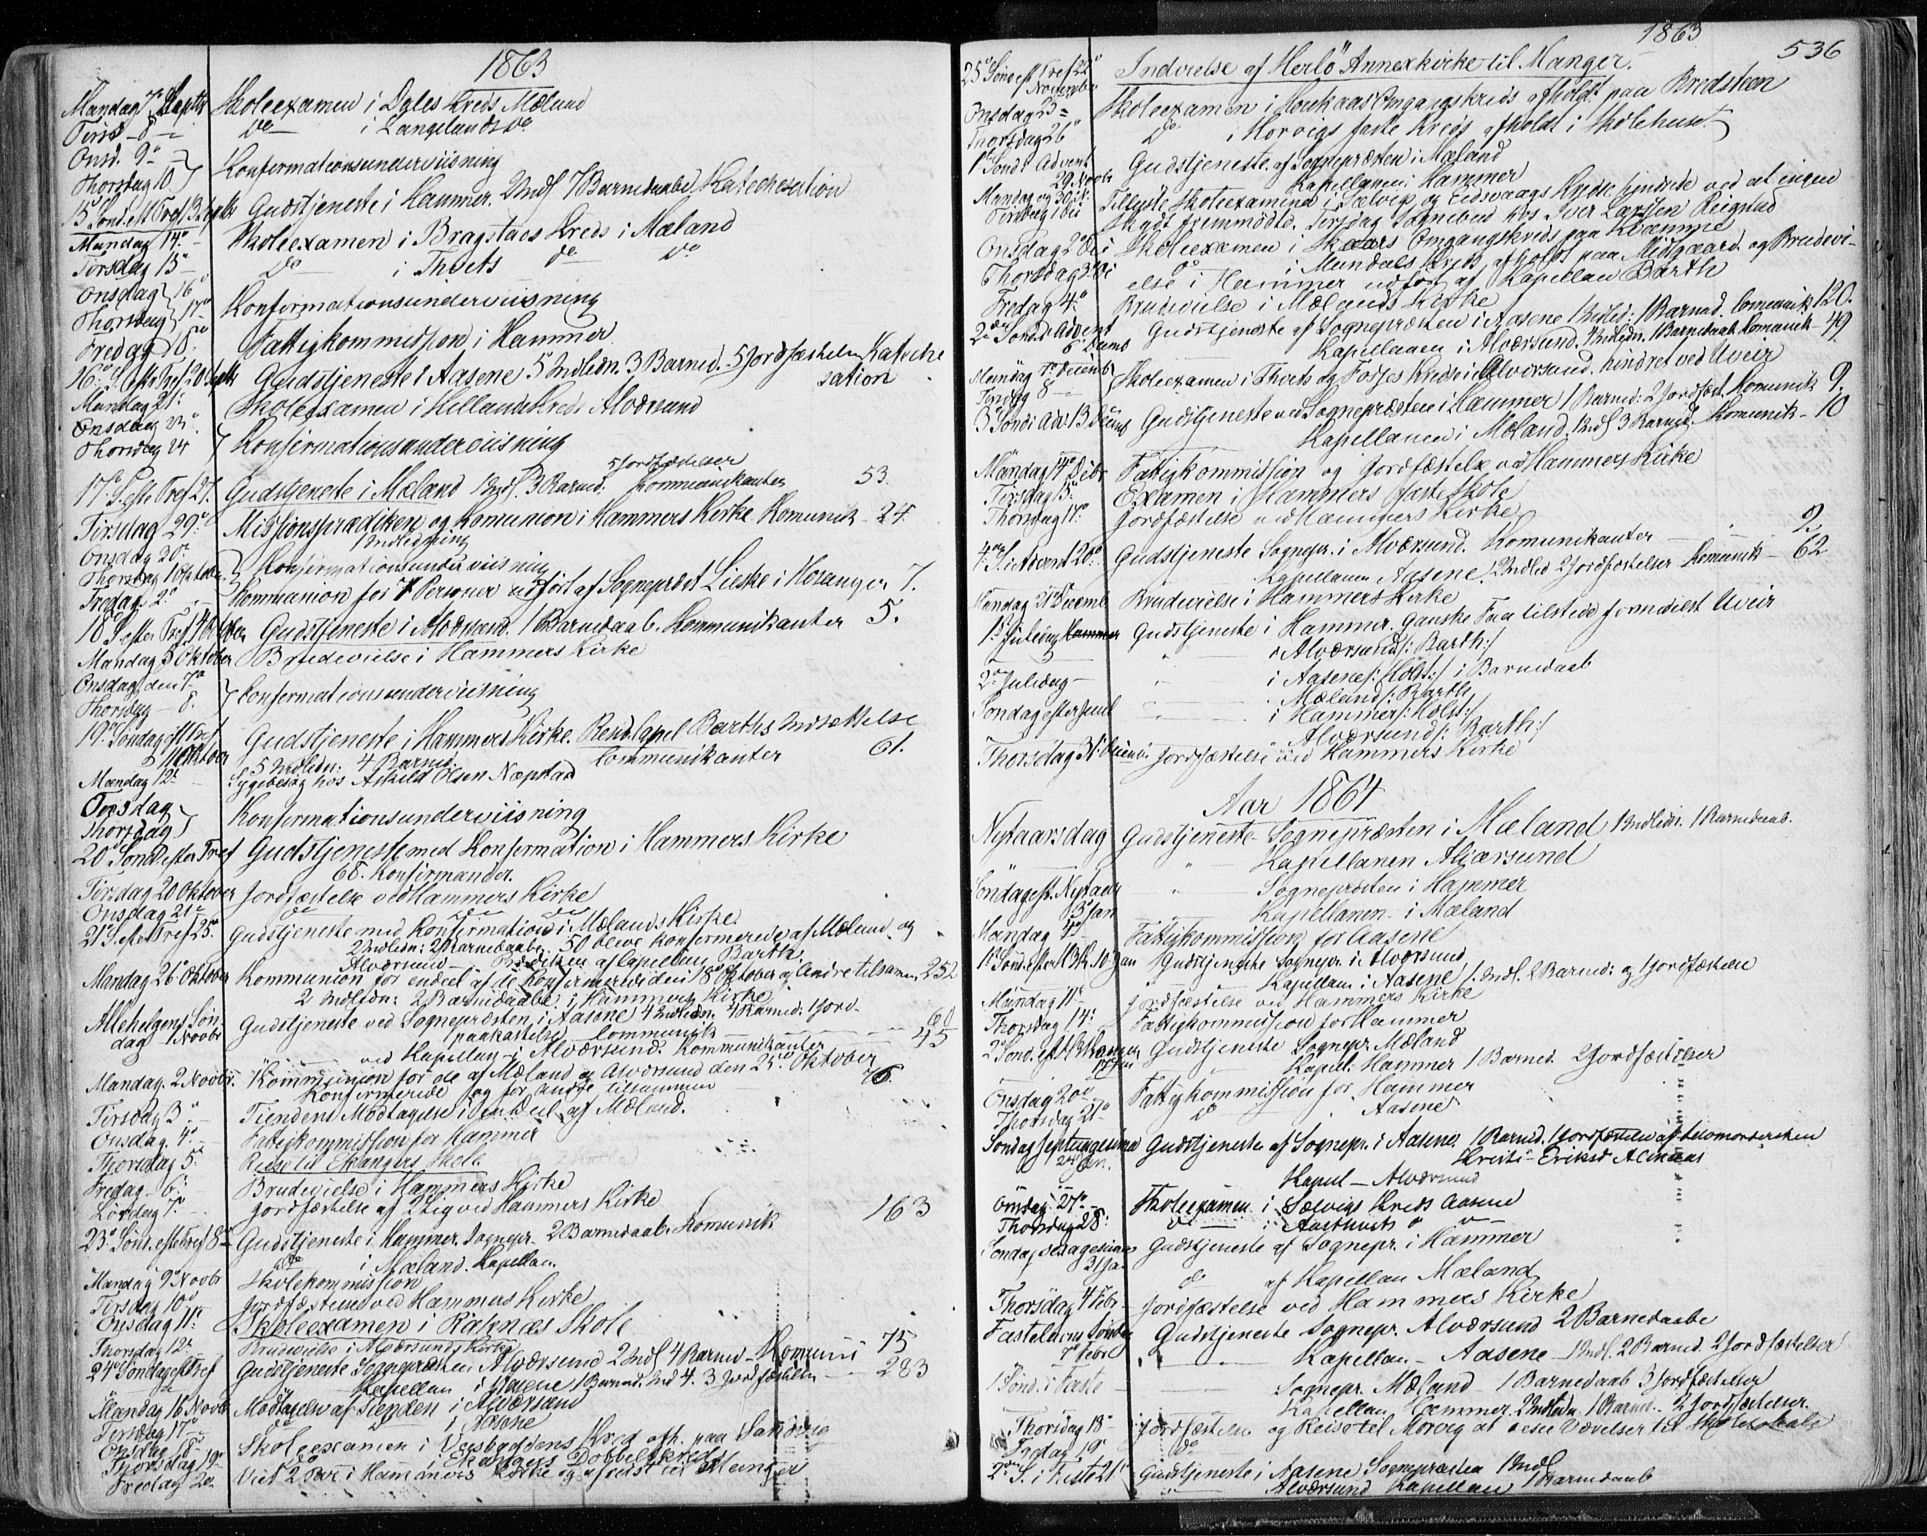 1863
Mandag 7de Septbr Skoleexamen i Dales Kreds Mæland
Tirsd. 8 — do i Langelands do
Onsd. 9o
Thorsdag 10 } Konfirmationsunderviisning
15 Sønd. eft Tref 13 Septbr Gudstjeneste i Hammer. 2 Indl. 7 Barnedaabe Katechesation
Mandag 14o — Skoleexamen i Bragstad Kreds i Mæland
Tirsdag 15 — do i Thveits do do
Onsdag 16o
Thorsdag 17o } Konfirmationsunderviisning
Fredag 18o Fattigkommission i Hammer.
16o S. efter Tref 20 Septbr Gudstjeneste i Aasene 5 Indledn. 3 Barned. 5 Jordfæstelser Kateche
sation
Mandag 21: Skoleexamen i Hillands Kreds Alværsund
Onsdag 23o
Thorsdag 24 } Konfirmationsunderviisning
5 Jordfæstelser
17o S. efter Tref 27. Gudstjeneste i Mæland 1 Indl. 3 Barned. Kommunikanter 53.
Tirsdag 29o Missionsprædiken og Komunion i Hammers Kirke. Komunik — 24.
1 Indledning
Onsdag 30.
Thorsdag 1 Oktober } Konfirmationsunderviisning
Fredag 2o Kommunion for 7 Personer udført af Sogneprest Lieske i Hosanger 7.
18o S. efter Tref 4 Oktober Gudstjeneste i Alværsund. 1 Barnedaab. Kommunikanter 5.
Mandag 5 Oktober Brudevielse i Hammers Kirke
Onsdag den 7o
Thorsdag — 8. } Konfirmationsunderviisning
19o Søndag eft Tref
11 Oktober Gudstjeneste i Hammers Kirke. Resd. Capel Barths Indsættelse
5 Indledn: 4 Barned. Communikanter 61.
Mandag 12o Sygebesøg hos Askild Olsen Næpstad
Torsdag
Thorsdag } Konfirmationsunderviisning
20o Sønd efter Tref Gudstjeneste med Konfirmation i Hammers Kirke
68. Konfirmander.
Tirsdag 20 Oktober Jordfæstelse ved Hammers Kirke
Onsdag 21o do do do
21o S. efter Tref 25o Gudstjeneste med Konfirmation i Mælands Kirke
2 Indledn: 2 Barnedaabe. 50 bleve konfirmerede af Mæland og
Alværsund — Prædiken af Capellan Barth.
Mandag 26o Oktober Kommunion for endeel af de konfirmerede den 18o Oktober og andre tilsammen 252
2 Indledn: 2 Barnedaabe i Hammers Kirke
Allehelgens Søn
dag 1 Novbr Gudstjeneste ved Sognepræsten i Aasene 4 Indledn. 4 Barned: 1 Jord-
paakastelse Communik — 60
ved Kapellan i Alværsund. Kommunikanter 45
Mandag. 2 Novbr. Kommunion for de af Mæland og Alværsund den 25de Oktober
Konfirmerede og for andre tilsammen 76.
Tirsdag 3o Tiendens Modtagelse i en Deel af Mæland.
Onsdag. 4o Fattigkommission for Hammer
Thorsdag 5o Reise til Eknangers Skole
Fredag 6: Brudevielse i Hammers Kirke
Lørdag 7o Jordfæstelse af 2 Lig ved Hammers Kirke
23o Sønd. efter Tref 8o Gudstjeneste i Hammer. Sognepr. 2 Barnedaabe. Komunik 163
do i Mæland. Kapellan
Mandag 9o Novbr Skolekommission
Tirsdag 10o Jordfæstelse ved Hammers Kirke
Onsdag 11: Skoleexamen i Rasnæs Skole
Thorsdag 12o Brudevielse i Alværsunds Kirke
24o Søndag eft Tref Gudstjeneste Sognepræsten Alværsund 2 Indl 4 Barned — Komuni 75
Kapellan i Aasene 1 Barned. Ind 4. 3 Jordfæstelser — 283
Mandag 16 Novbr Modtagelse af Tienden i Alværsund
Tirsdag 17o do i Aasene
Onsdag 18o Skoleexamen i Kred afh. paa Sandvig
Thorsdag 19o do i Eknangers Dobbeltkreds
Fredag 20 Viet 2 Par i Hammers Kirke og afreist til Manger

1863
536
25o Sønd eft Tref 22o
November Indvielse af Herlö Annexkirke til Manger.
Onsdag 25 Skoleexamen i Houkaas Omgangskreds afholdt paa Bredsteen
Thorsdag 26o do i Horvigs faste Kreds afholdt i Skolehuset
1o Sønd i Advent Gudstjeneste af Sognepræsten i Mæland
29 Novbr Kapellanen i Hammer
Mandag og 30 Nov
Tirsdag 1 Dec Tillyste Skoleexamina i Sælvig og Eidsvaags Kredse hindrede ved at ingen
Skyds fremmødte. Tirsdag Sognebud hos Iver Larssen Reigstad
Onsdag 2o De Skoleexamen i Skaars Omgangskreds paa Kvamme
Thorsdag 3o De do i Mundals Kreds afholdt paa Midgaard. og Brudevi-
else i Hammer udført af Kapellan Barth
Fredag 4o Brudevielse i Mælands Kirke
2den Sønd. i Advent Gudstjeneste af Sognepræsten i Aasene 1 Indled: 1 Barned. Comunik: 120.
6 Decmb Kapellanen i Alværsund. 1 Indledn. 1 Barnedaab. Komunik — 49.
Mandag 7o Decmbr
Tirsdag 8 — Skoleexamen i Thveits og Fosses Kredse i Alværsund. hindret ved Uveir
3o Sønd i Adv 13 Decmb Gudstjeneste ved Sognepræsten i Hammer 1 Barned: 2 Jordfæst. Komunik 9.
Kapellanen i Mæland. 1 Indl 3 Barned. Komunik — 10
Mandag 14o Decbr Fattigkommission og Jordfæstelse ved Hammers Kirke
Tirsdag 15: Examen i Hammers faste Skole
Thorsdag 17o Jordfæstelse ved Hammers Kirke
4o S. i Advent 20o Gudstjeneste Sognepr. i Alværsund. Komunikanter — 2
Kapellanen Aasene. 2 Indled 2 Jordfæstelser Komunik — 62
Mandag 21 Decemb Brudevielse i Hammers Kirke
1o Juledag Gudstjeneste i Hammer. ganske Faa tilstede formedelst Uveir
" — " Alværsund /: Barth :/
2o Juledag — " — i Aasene /: Holst :/ 1 Barnedaab
" — Mæland /: Barth :/
Søndag efter Juul — i Hammer /: Holst :/
— Alværsund /: Barth :/
Thorsdag 31: Decmbr Jordfæstelse ved Hammers Kirke
Aar 1864
Nytaarsdag Gudstjeneste Sognepræsten i Mæland 1 Indledn. 1 Barnedaab.
" Kapellanen Alværsund
Søndag eft. Nytaar " Sognepræsten i Hammer
3 Jan Kapellanen i Mæland
Mandag 4o Fattigkommission for Aasene
1o Sønd. efter H3K 10 Jan Gudstjeneste Sognepr. i Alværsund
Kapellan i Aasene 1 Indl. 2 Barned: og 1 Jordfæstelse
Mandag 11o Jordfæstelse ved Hammers Kirke
Thorsdag 14: Fattigkommission for Hammer
2o Sønd. eft H3K Gudstjeneste Sognepr. Mæland
17 Jan Kapel: Hammer 1 Barned. 2 Jordfæstelser
Onsdag 20o Fattigkommission for Hammer
Thorsdag 21o do Aasene
Søndag Septuagesima Gudstjeneste af Sognepr. i Aasene 1 Barned. 1 Jordfæstelse af Selvmordersken
24 Jan. Kristi Eriksd Alvnæs
Kapel — Alværsund
Onsdag 27o Skoleexamen i Sælvigs Kreds Aasene
Thorsdag 28: do i Aastveits
Søndag Sexagesima Gudstjeneste af Sognepr. i Hammer
31 Ja. do af Kapellan Mæland
Thorsdag 4 Febr. Jordfæstelse ved Hammers Kirke
Fastelavns Søndag Gudstjeneste Sognepr. Alværsund 2 Barnedaabe
7o Febr Kapellan — Aasene — 1 Indl. 2 Barned. 2 Jordfæstelser
1 Sønd. i Faste Sognepr. Mæland — 1 Barnedaab 3 Jordfæstelser
Kapellan Hammer. 2 Indledn. 1 Barned. 2 Jordfæstelser.
Thorsdag 18 — Jordfæstelse og Reise til Morvig at bese Værelser til Skolelokale
Fredag 19o do
2o S. i Faste 21o Gudstjeneste i Aasene Sognepræsten 1 Indl
Alværsund Kapellan 1 Barnedaab